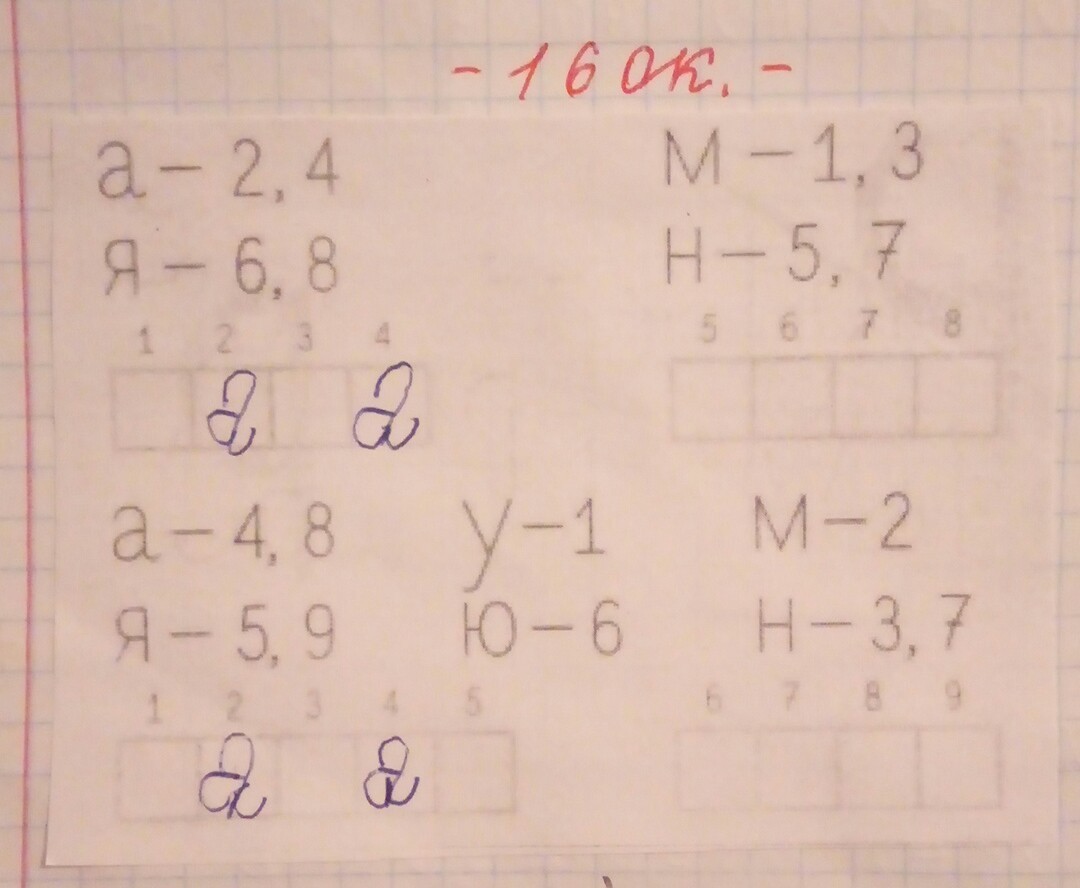 - 16 ок. -
а – 2, 4 М – 1, 3
Я – 6, 8 Н – 5, 7
1 2 3 4 5 6 7 8
а а
а – 4, 8 У – 1 М – 2
Я – 5, 9 Ю – 6 Н – 3, 7
1 2 3 4 5 6 7 8 9
а а